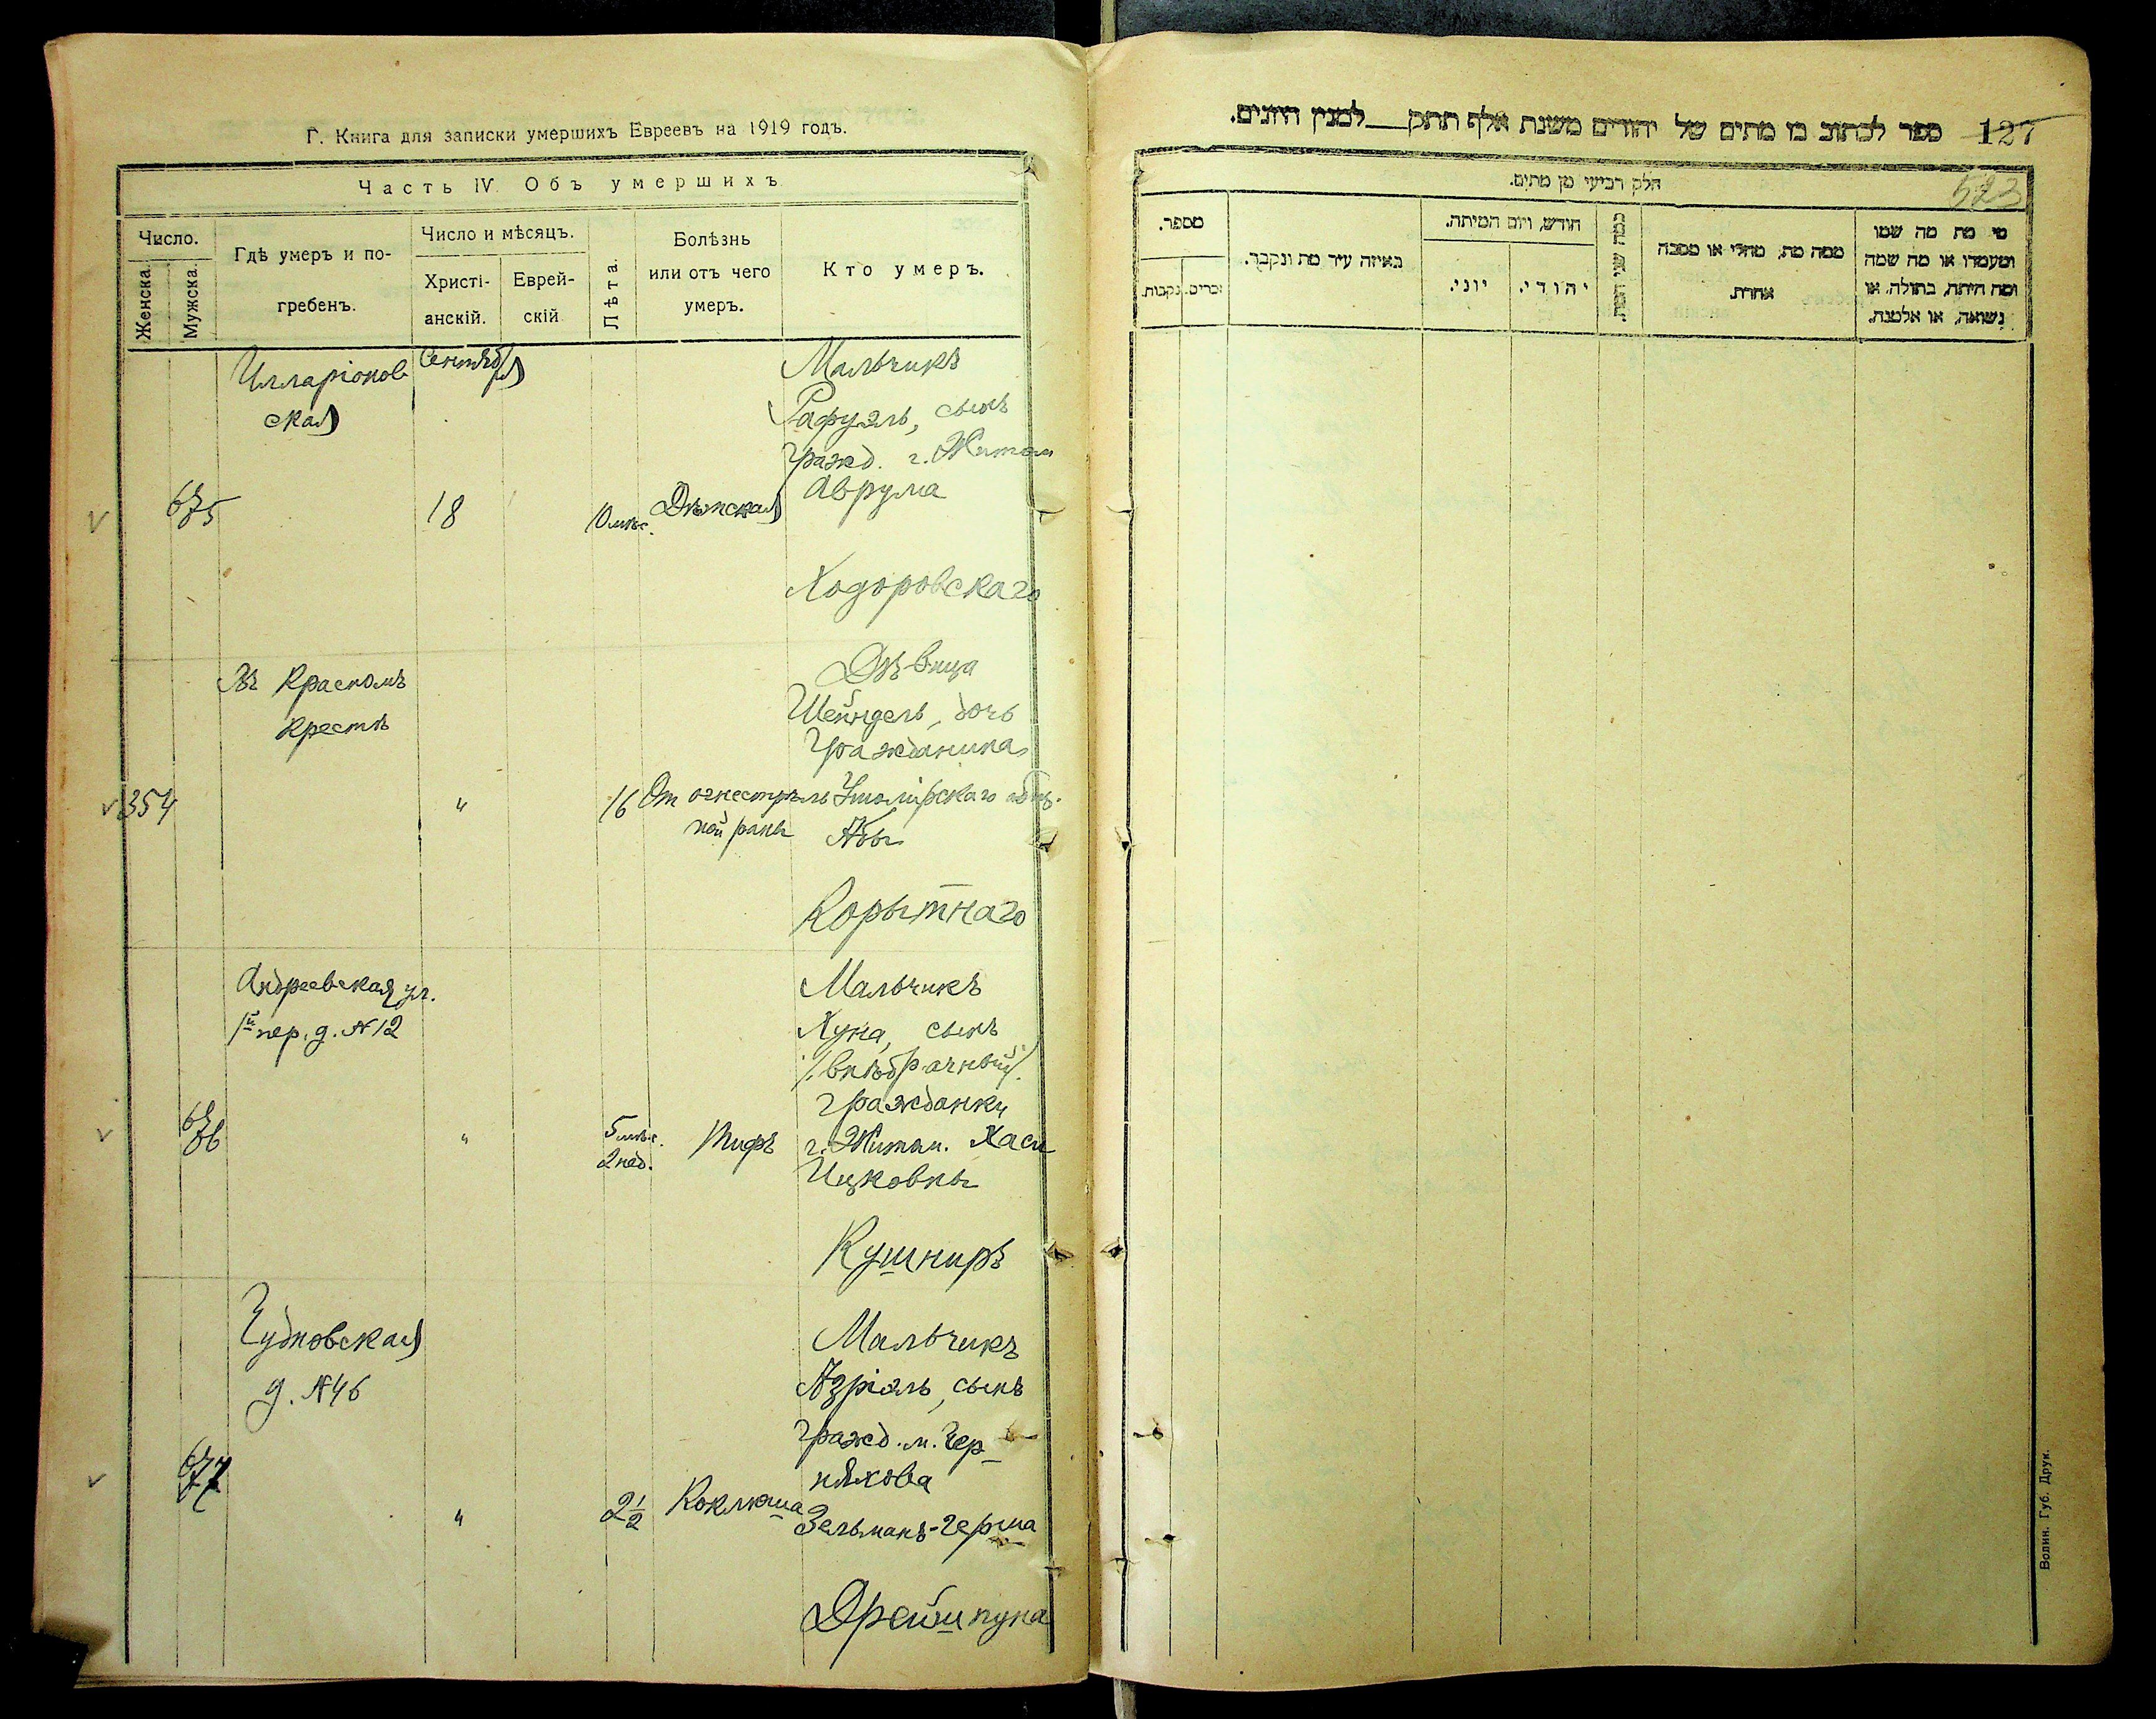 Г. Книга для записки умершихъ Евреевъ на 1919 годъ.
Часть IV. Объ умершихъ
Число.
Женска
Мужска
Гдѣ умеръ и по-
гребенъ.
Число и мѣсяцъ.
Христі-
анскій.
Еврей-
скій
Лѣта.
Болѣзнь
или отъ чего
умеръ.
Кто умеръ.
675
Илларіонов
ская
Сентября
18
10 мѣс.
Дѣтская
Мальчикъ
Рафуэль, сынъ
гражд. г. Житом
Аврума
Ходоровскаго
354
Въ Красномъ
Крестѣ
"
16
От огнестрѣль
ной раны
Дѣвица
Шейндель, дочь
Гражданина
Абы
Корытнаго
676
Андреевская ул.
1й пер. д. № 12
"
5 мѣс.
2 нед.
Тифъ
Мальчикъ
Хуна, сынъ
/внѣбрачный/
гражданки
г. Житом. Хаси
Ицковны
Кушниръ
677
Чудновская
д. № 46
"
2 1/2
Коклюша
Мальчикъ
Азріэль, сынъ
гражд. м. Чер-
няхова
Зельманъ-Герша
Дрейшпуна
ספר לכתוב בו מתים של יהודים משנת אלף תתק__ למנין היונים.
127
523
חלק רביעי מן מתים.
מי מת מה שמו
ומעמדו או מה שמה
ומה היתה, בתולה, או
נשואה, או אלמנה.
ממה מת, מחלי או מסבה
אחרת.
כמה שני המת.
חודש, ויום המיתה.
יהודי.
יוני.
באיזה עיר מת ונקבר.
מספר.
זכרים.
נקבות.
Волин. Губ. Друк.